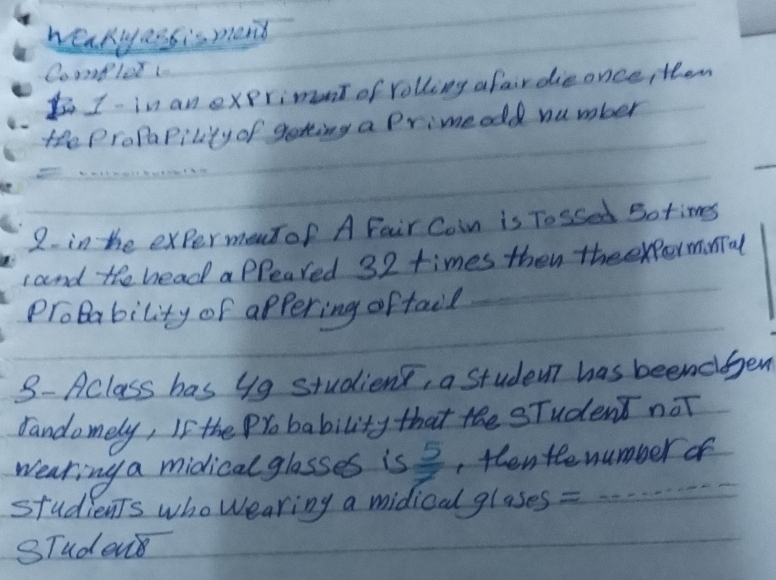 Weakly assisment
Complet :-
1- in an expriment of rolling a fair die once, then
the ProPaPility of getting a Prime odd number
= ..............
2- in the experment of A Fair Coin is Tossed 50 times
, and the head appeared 32 times then the expermintal
Probability of appering of tail
3- A class has 49 studient, a student has been chosen
randomely, If the Probability that the STudent noT
Wearing a midical glasses is 5/7, then the number of
studients who Wearing a midical glases = ..............
STudent